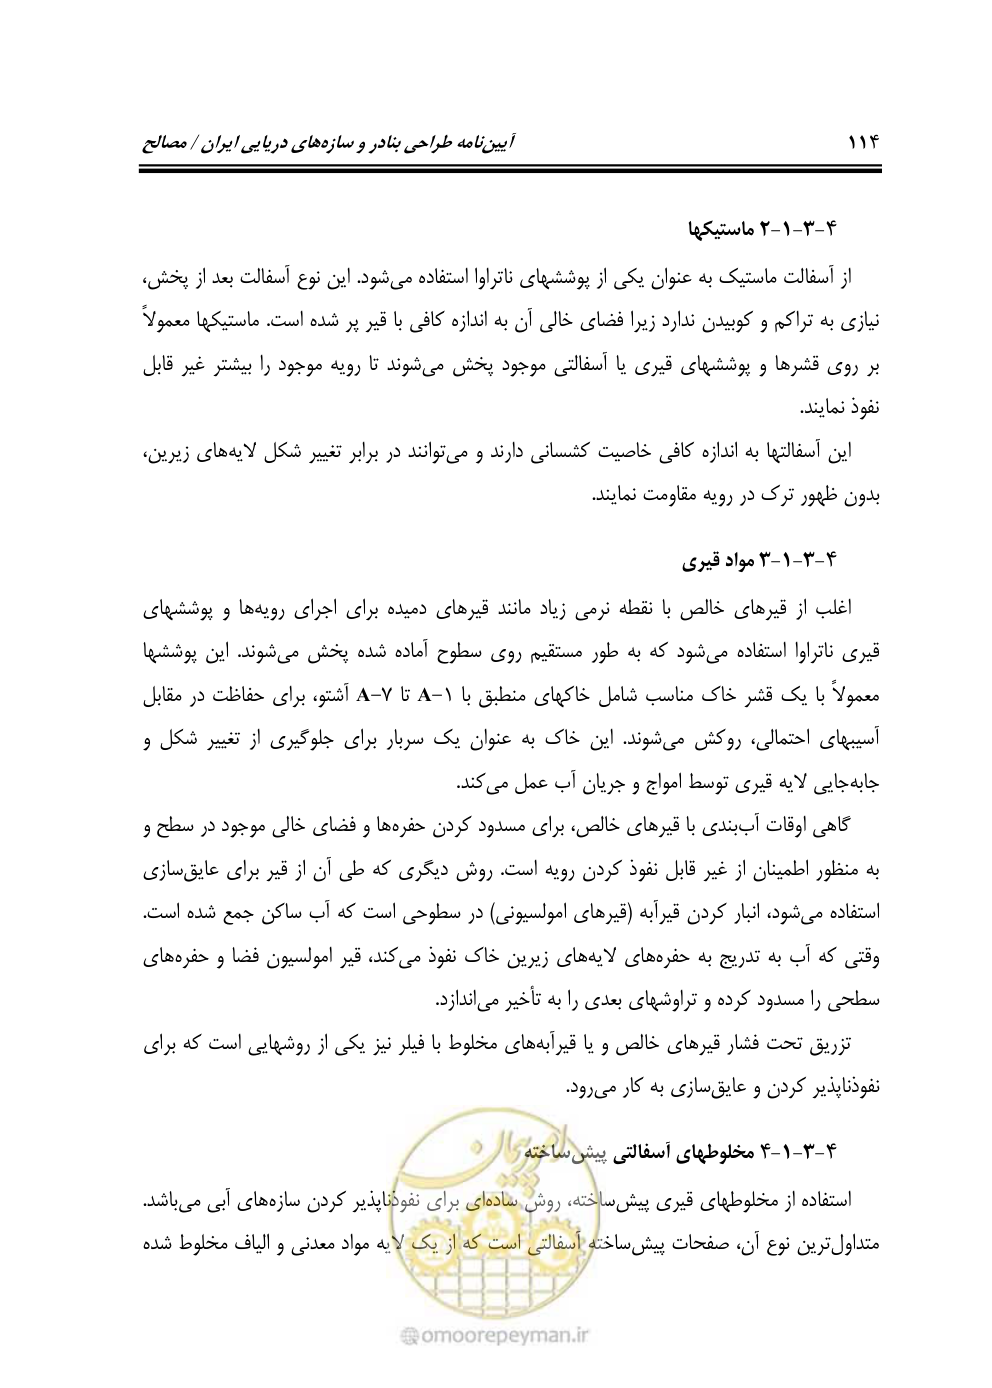 ۱۱۴ آیین‌نامه طراحی بنادر و سازه‌های دریایی ایران / مصالح
۴-۳-۱-۲ ماستیکها
از آسفالت ماستیک به عنوان یکی از پوششهای ناتراوا استفاده می‌شود. این نوع آسفالت بعد از پخش،
نیازی به تراکم و کوبیدن ندارد زیرا فضای خالی آن به اندازه کافی با قیر پر شده است. ماستیکها معمولاً
بر روی قشرها و پوششهای قیری یا آسفالتی موجود پخش می‌شوند تا رویه موجود را بیشتر غیر قابل
نفوذ نمایند.
این آسفالتها به اندازه کافی خاصیت کشسانی دارند و می‌توانند در برابر تغییر شکل لایه‌های زیرین،
بدون ظهور ترک در رویه مقاومت نمایند.
۴-۳-۱-۳ مواد قیری
اغلب از قیرهای خالص با نقطه نرمی زیاد مانند قیرهای دمیده برای اجرای رویه‌ها و پوششهای
قیری ناتراوا استفاده می‌شود که به طور مستقیم روی سطوح آماده شده پخش می‌شوند. این پوششها
معمولاً با یک قشر خاک مناسب شامل خاکهای منطبق با A-۱ تا A-۷ آشتو، برای حفاظت در مقابل
آسیبهای احتمالی، روکش می‌شوند. این خاک به عنوان یک سربار برای جلوگیری از تغییر شکل و
جابه‌جایی لایه قیری توسط امواج و جریان آب عمل می‌کند.
گاهی اوقات آب‌بندی با قیرهای خالص، برای مسدود کردن حفره‌ها و فضای خالی موجود در سطح و
به منظور اطمینان از غیر قابل نفوذ کردن رویه است. روش دیگری که طی آن از قیر برای عایق‌سازی
استفاده می‌شود، انبار کردن قیرآبه (قیرهای امولسیونی) در سطوحی است که آب ساکن جمع شده است.
وقتی که آب به تدریج به حفره‌های لایه‌های زیرین خاک نفوذ می‌کند، قیر امولسیون فضا و حفره‌های
سطحی را مسدود کرده و تراوشهای بعدی را به تأخیر می‌اندازد.
تزریق تحت فشار قیرهای خالص و یا قیرآبه‌های مخلوط با فیلر نیز یکی از روشهایی است که برای
نفوذناپذیر کردن و عایق‌سازی به کار می‌رود.
۴-۳-۱-۴ مخلوطهای آسفالتی پیش‌ساخته
استفاده از مخلوطهای قیری پیش‌ساخته، روش ساده‌ای برای نفوذناپذیر کردن سازه‌های آبی می‌باشد.
متداول‌ترین نوع آن، صفحات پیش‌ساخته آسفالتی است که از یک لایه مواد معدنی و الیاف مخلوط شده
امور پیمان
@omoorepeyman.ir